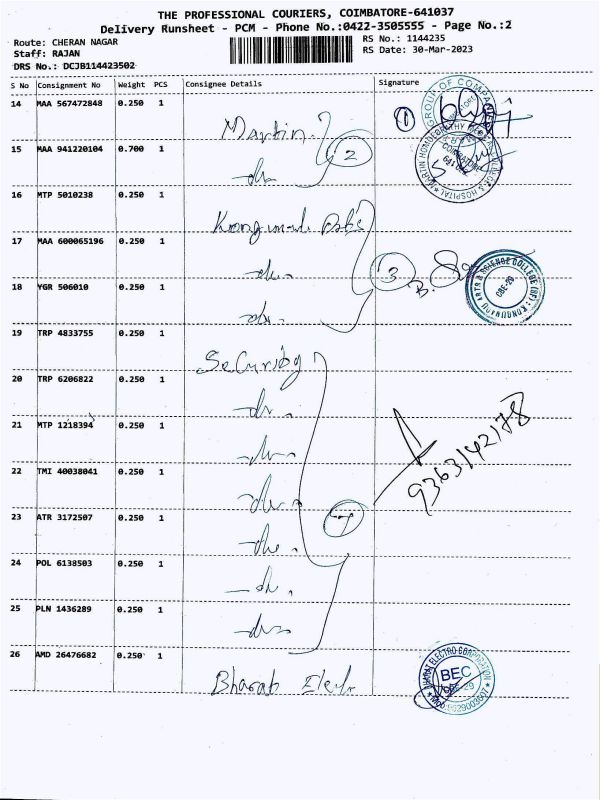 THE PROFESSIONAL COURIERS, COIMBATORE-641037
Delivery Runsheet - PCM - Phone No.:0422-3505555 - Page No.:2
Route: CHERAN NAGAR
RS No.: 1144235
Staff: RAJAN
RS Date: 30-Mar-2023
DRS No.: DCJB114423502
S No Consignment No Weight PCS Consignee Details Signature
14 MAA 567472848 0.250 1 Martin
15 MAA 941220104 0.700 1
2
16 MTP 5010238 0.250 1
17 MAA 600065196 0.250 1
18 YGR 506010 0.250 1
3
B.
19 TRP 4833755 0.250 1 Security
20 TRP 6206822 0.250 1
21 MTP 1218394 0.250 1
22 TMI 40038041 0.250 1
9363142178
23 ATR 3172507 0.250 1
7
24 POL 6138503 0.250 1
25 PLN 1436289 0.250 1
26 AMD 26476682 0.250 1 Bharat
GROUP OF COMPANIES
MARTIN HOMOEOPATHY MEDICAL COLLEGE & HOSPITAL
COIMBATORE
ARTS & SCIENCE COLLEGE
CBE-29
BHARAT ELECTRO CORPORATION
BEC